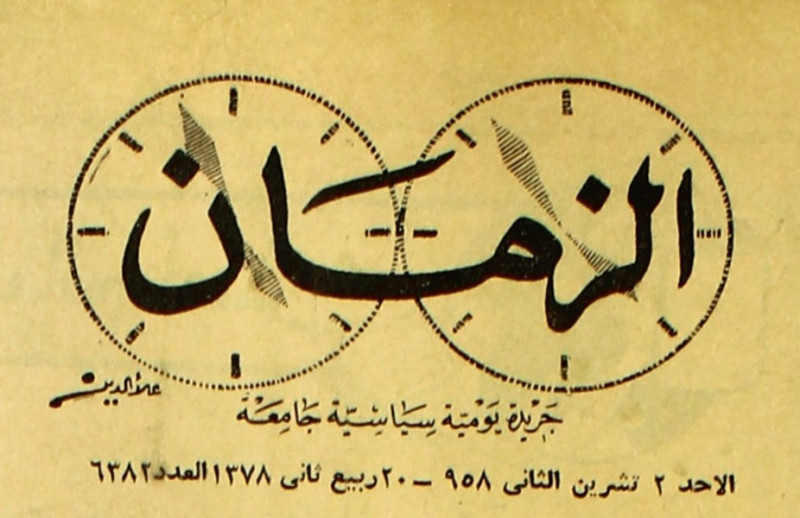 الزمان
علاء الدين
جَرِيْدة يَوْميّة سِيَاسِيّة جَامِعَة
الاحد ٢ تشرين الثانى ٩٥٨ — ٢٠ ربيع ثانى ١٣٧٨ العدد ٦٣٨٢